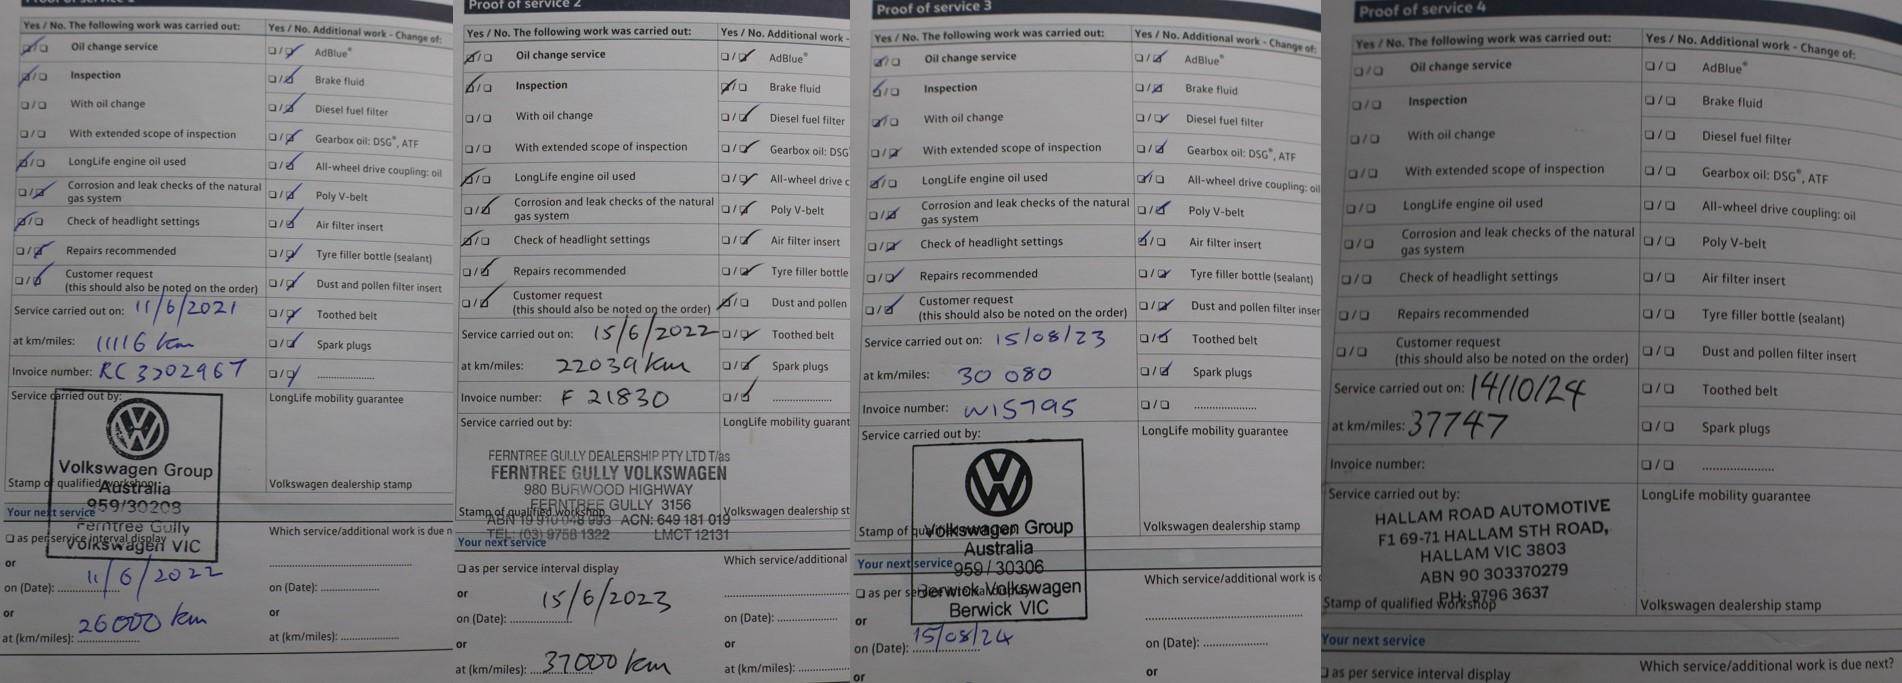 Proof of service 1
Yes / No. The following work was carried out:
Yes / No. Additional work - Change of:
Oil change service
AdBlue®
Inspection
Brake fluid
With oil change
Diesel fuel filter
With extended scope of inspection
Gearbox oil: DSG®, ATF
LongLife engine oil used
All-wheel drive coupling: oil
Corrosion and leak checks of the natural
gas system
Poly V-belt
Check of headlight settings
Air filter insert
Repairs recommended
Tyre filler bottle (sealant)
Customer request
(this should also be noted on the order)
Dust and pollen filter insert
Service carried out on: 11/6/2021
Toothed belt
at km/miles: 11116 km
Spark plugs
Invoice number: RC 3302967
Service carried out by:
LongLife mobility guarantee
Volkswagen Group
Australia
959/30208
Ferntree Gully
Volkswagen VIC
Stamp of qualified workshop
Volkswagen dealership stamp
Your next service
as per service interval display
Which service/additional work is due n
or
on (Date): 11/6/2022
on (Date):
or
or
at (km/miles): 26000 km
at (km/miles):
Proof of service 2
Yes / No. The following work was carried out:
Yes / No. Additional work -
Oil change service
AdBlue®
Inspection
Brake fluid
With oil change
Diesel fuel filter
With extended scope of inspection
Gearbox oil: DSG
LongLife engine oil used
All-wheel drive c
Corrosion and leak checks of the natural
gas system
Poly V-belt
Check of headlight settings
Air filter insert
Repairs recommended
Tyre filler bottle
Customer request
(this should also be noted on the order)
Dust and pollen
Service carried out on: 15/6/2022
Toothed belt
at km/miles: 22039 km
Spark plugs
Invoice number: F 21830
Service carried out by:
LongLife mobility guarant
FERNTREE GULLY DEALERSHIP PTY LTD T/as
FERNTREE GULLY VOLKSWAGEN
980 BURWOOD HIGHWAY
FERNTREE GULLY 3156
ABN 19 910 048 993 ACN: 649 181 019
TEL: (03) 9758 1322 LMCT 12131
Stamp of qualified workshop
Volkswagen dealership st
Your next service
as per service interval display
Which service/additional
or
on (Date): 15/6/2023
on (Date):
or
or
at (km/miles): 37000 km
at (km/miles):
Proof of service 3
Yes / No. The following work was carried out:
Yes / No. Additional work - Change of:
Oil change service
AdBlue®
Inspection
Brake fluid
With oil change
Diesel fuel filter
With extended scope of inspection
Gearbox oil: DSG®, ATF
LongLife engine oil used
All-wheel drive coupling: oil
Corrosion and leak checks of the natural
gas system
Poly V-belt
Check of headlight settings
Air filter insert
Repairs recommended
Tyre filler bottle (sealant)
Customer request
(this should also be noted on the order)
Dust and pollen filter inser
Service carried out on: 15/08/23
Toothed belt
at km/miles: 30 080
Spark plugs
Invoice number: W15795
Service carried out by:
LongLife mobility guarantee
Volkswagen Group
Australia
959 / 30306
Berwick Volkswagen
Berwick VIC
Volkswagen dealership stamp
Your next service
Which service/additional work is
or
on (Date): 15/08/24
on (Date):
or
or
Proof of service 4
Yes / No. The following work was carried out:
Yes / No. Additional work - Change of:
Oil change service
AdBlue®
Inspection
Brake fluid
With oil change
Diesel fuel filter
With extended scope of inspection
Gearbox oil: DSG®, ATF
LongLife engine oil used
All-wheel drive coupling: oil
Corrosion and leak checks of the natural
gas system
Poly V-belt
Check of headlight settings
Air filter insert
Repairs recommended
Tyre filler bottle (sealant)
Customer request
(this should also be noted on the order)
Dust and pollen filter insert
Service carried out on: 14/10/24
Toothed belt
at km/miles: 37747
Spark plugs
Invoice number:
Service carried out by:
LongLife mobility guarantee
HALLAM ROAD AUTOMOTIVE
F1 69-71 HALLAM STH ROAD,
HALLAM VIC 3803
ABN 90 303370279
PH: 9796 3637
Stamp of qualified workshop
Volkswagen dealership stamp
Your next service
as per service interval display
Which service/additional work is due next?